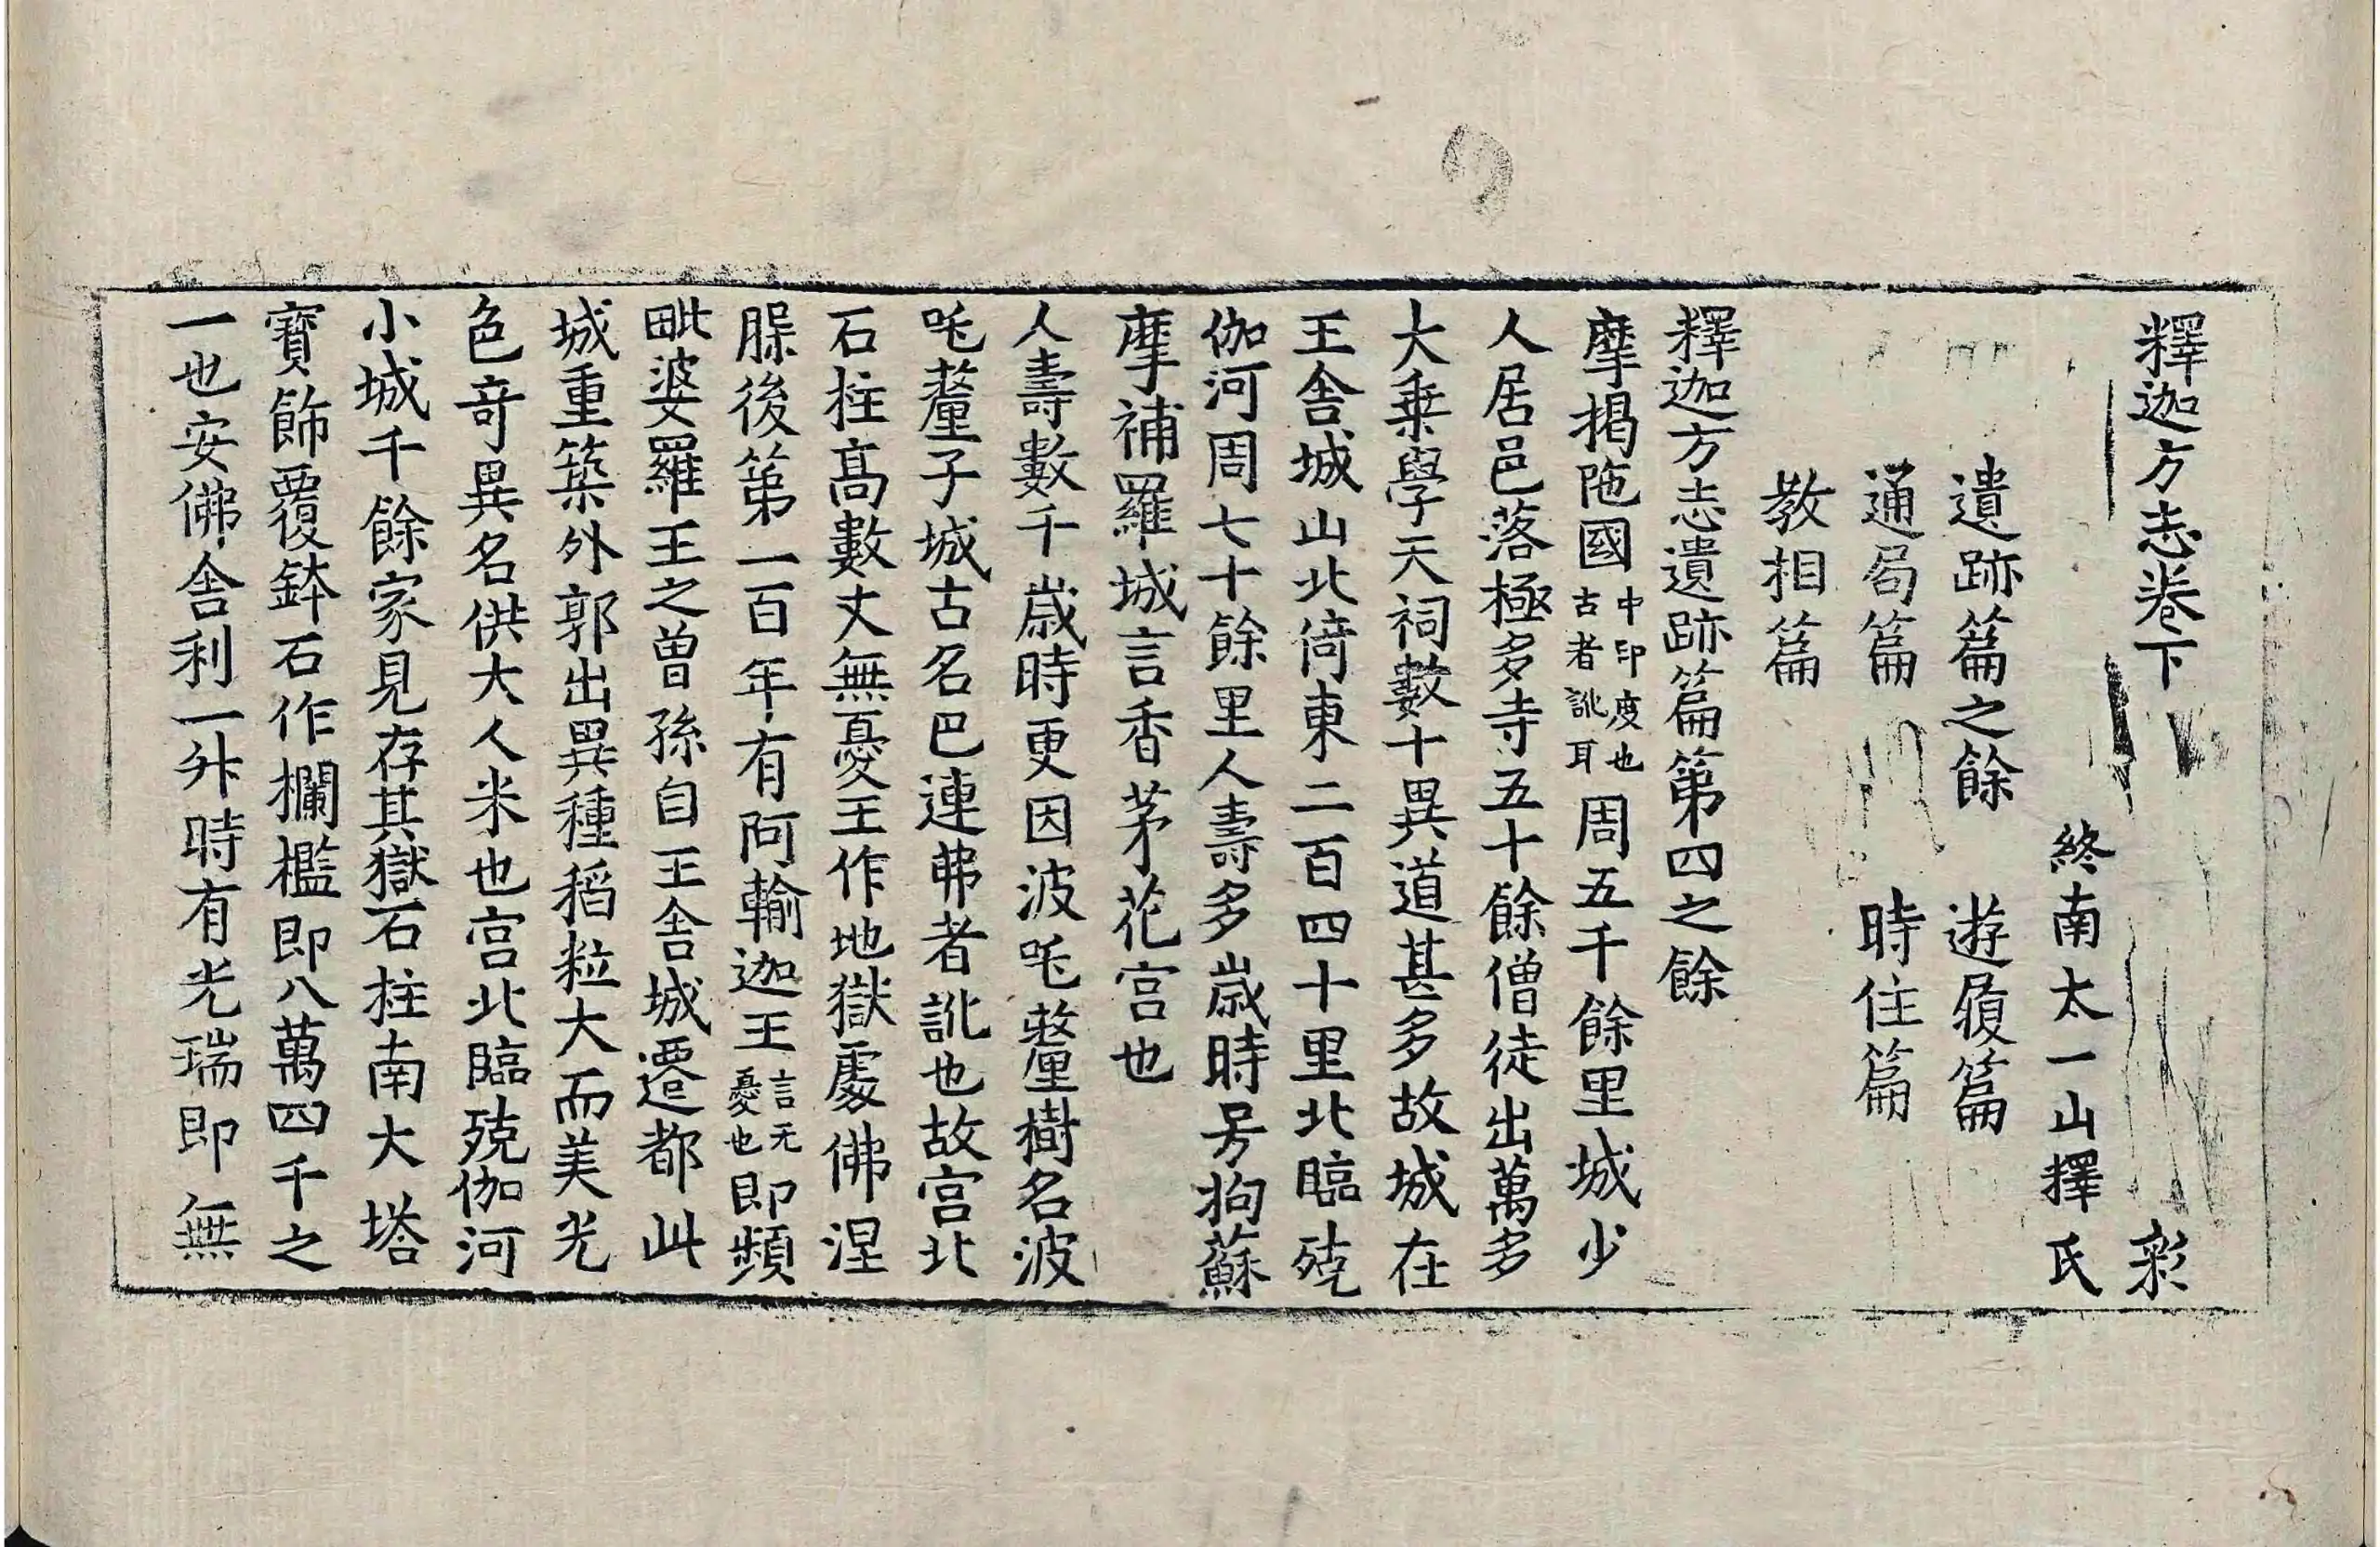 釋迦方志卷下　彩
終南太一山釋氏
遺跡篇之餘　遊履篇
通局篇　時住篇
教相篇
釋迦方志遺跡篇第四之餘
摩揭陁國中印度也古者訛耳周五千餘里城少
人居邑落極多寺五十餘僧徒出萬多
大乗學天祠數十異道甚多故城在
王舎城山北倚東二百四十里北臨殑
伽河周七十餘里人壽多歲時号拘蘇
摩補羅城言香茅花宫也
人壽數千歲時更因波吒釐樹名波
吒釐子城古名巴連弗者訛也故宫北
石柱髙數丈無憂王作地獄處佛涅
槃後第一百年有阿輸迦王言无憂也即頻
毗婆羅王之曽孫自王舎城遷都此
城重築外郭出異種稻粒大而美光
色竒異名供大人米也宫北臨殑伽河
小城千餘家見存其獄石柱南大塔
寶飾覆鉢石作欄檻即八萬四千之
一也安佛舎利一升時有光瑞即無